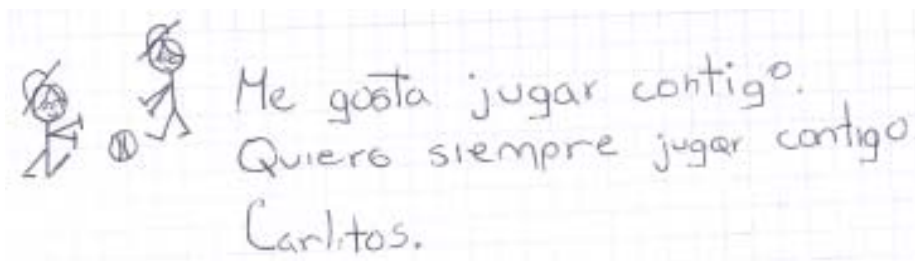 Me gusta jugar contigo.
Quiero siempre jugar contigo
Carlitos.